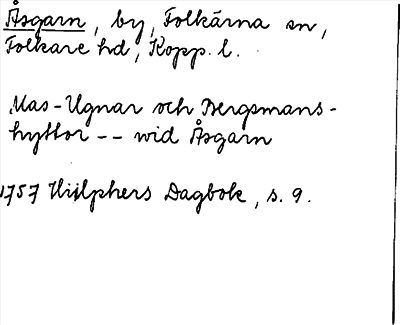 Åsgarn, by, Folkärna sn,
Folkare hd, Kopp. l.
Mas-Ugnar och Bergsmans-
hyttor -- wid Åsgarn
1757 Hülphers Dagbok, s. 9.